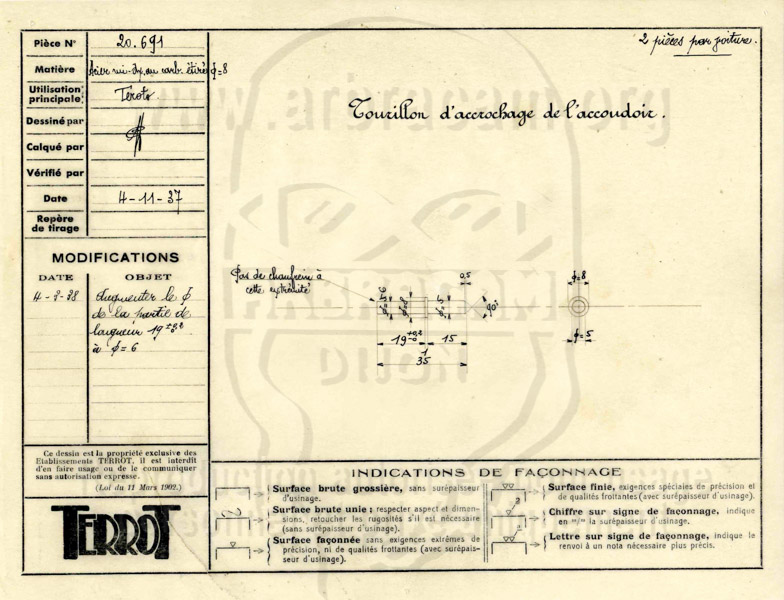 Pièce N° 20.691
Matière Acier mi-dur au carb. étiré φ=8
Utilisation principale Terots
Dessiné par
Calqué par
Vérifié par
Date 4-11-37
Repère de tirage
MODIFICATIONS
DATE OBJET
4-2-38 Augmenter le φ
de la partie de
longueur 19
à φ=6
Ce dessin est la propriété exclusive des
Etablissements TERROT, il est interdit
d'en faire usage ou de le communiquer
sans autorisation expresse.
(Loi du 11 Mars 1902.)
TERROT
2 pièces par voiture.
Tourillon d'accrochage de l'accoudoir.
Pas de chanfrein à
cette extrémité
0,5
φ=8
φ=5
90°
φ=8
φ=5
19 +0,2 -0
15
35
INDICATIONS DE FAÇONNAGE
Surface brute grossière, sans surépaisseur
d'usinage.
Surface brute unie: respecter aspect et dimen-
sions, retoucher les rugosités s'il est nécessaire
(sans surépaisseur d'usinage).
Surface façonnée sans exigences extrêmes de
précision, ni de qualités frottantes (avec surépais-
seur d'usinage).
Surface finie, exigences spéciales de précision et
de qualités frottantes (avec surépaisseur d'usinage).
Chiffre sur signe de façonnage, indique
en m/m la surépaisseur d'usinage.
Lettre sur signe de façonnage, indique le
renvoi à un nota nécessaire plus précis.
www.arbracam.org
DIJON